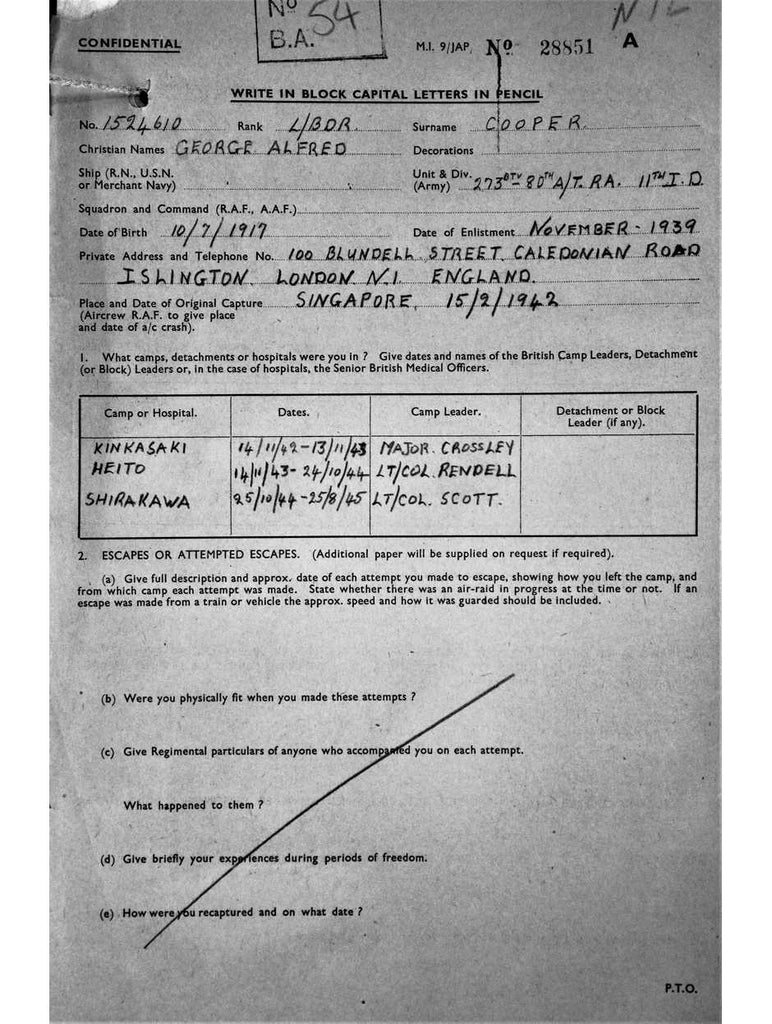 No 54
B.A.
NIL
CONFIDENTIAL
M.I. 9/JAP. No 28851 A
WRITE IN BLOCK CAPITAL LETTERS IN PENCIL
No. 1524610 Rank L/BDR. Surname COOPER.
Christian Names GEORGE ALFRED Decorations
Ship (R.N., U.S.N. or Merchant Navy) Unit & Div. (Army) 273 BTY - 80TH A/T. RA. 11TH I.D.
Squadron and Command (R.A.F., A.A.F.)
Date of Birth 10/7/1917 Date of Enlistment NOVEMBER - 1939
Private Address and Telephone No. 100 BLUNDELL STREET, CALEDONIAN ROAD
ISLINGTON. LONDON. N.1. ENGLAND.
Place and Date of Original Capture SINGAPORE, 15/2/1942
(Aircrew R.A.F. to give place
and date of a/c crash).
1. What camps, detachments or hospitals were you in ? Give dates and names of the British Camp Leaders, Detachment
(or Block) Leaders or, in the case of hospitals, the Senior British Medical Officers.
Camp or Hospital. Dates. Camp Leader. Detachment or Block Leader (if any).
KINKASAKI 14/11/42-13/11/43 MAJOR. CROSSLEY
HEITO 14/11/43-24/10/44 LT/COL. RENDELL
SHIRAKAWA 25/10/44-25/8/45 LT/COL. SCOTT.
2. ESCAPES OR ATTEMPTED ESCAPES. (Additional paper will be supplied on request if required).
(a) Give full description and approx. date of each attempt you made to escape, showing how you left the camp, and
from which camp each attempt was made. State whether there was an air-raid in progress at the time or not. If an
escape was made from a train or vehicle the approx. speed and how it was guarded should be included.
(b) Were you physically fit when you made these attempts ?
(c) Give Regimental particulars of anyone who accompanied you on each attempt.
What happened to them ?
(d) Give briefly your experiences during periods of freedom.
(e) How were you recaptured and on what date ?
P.T.O.